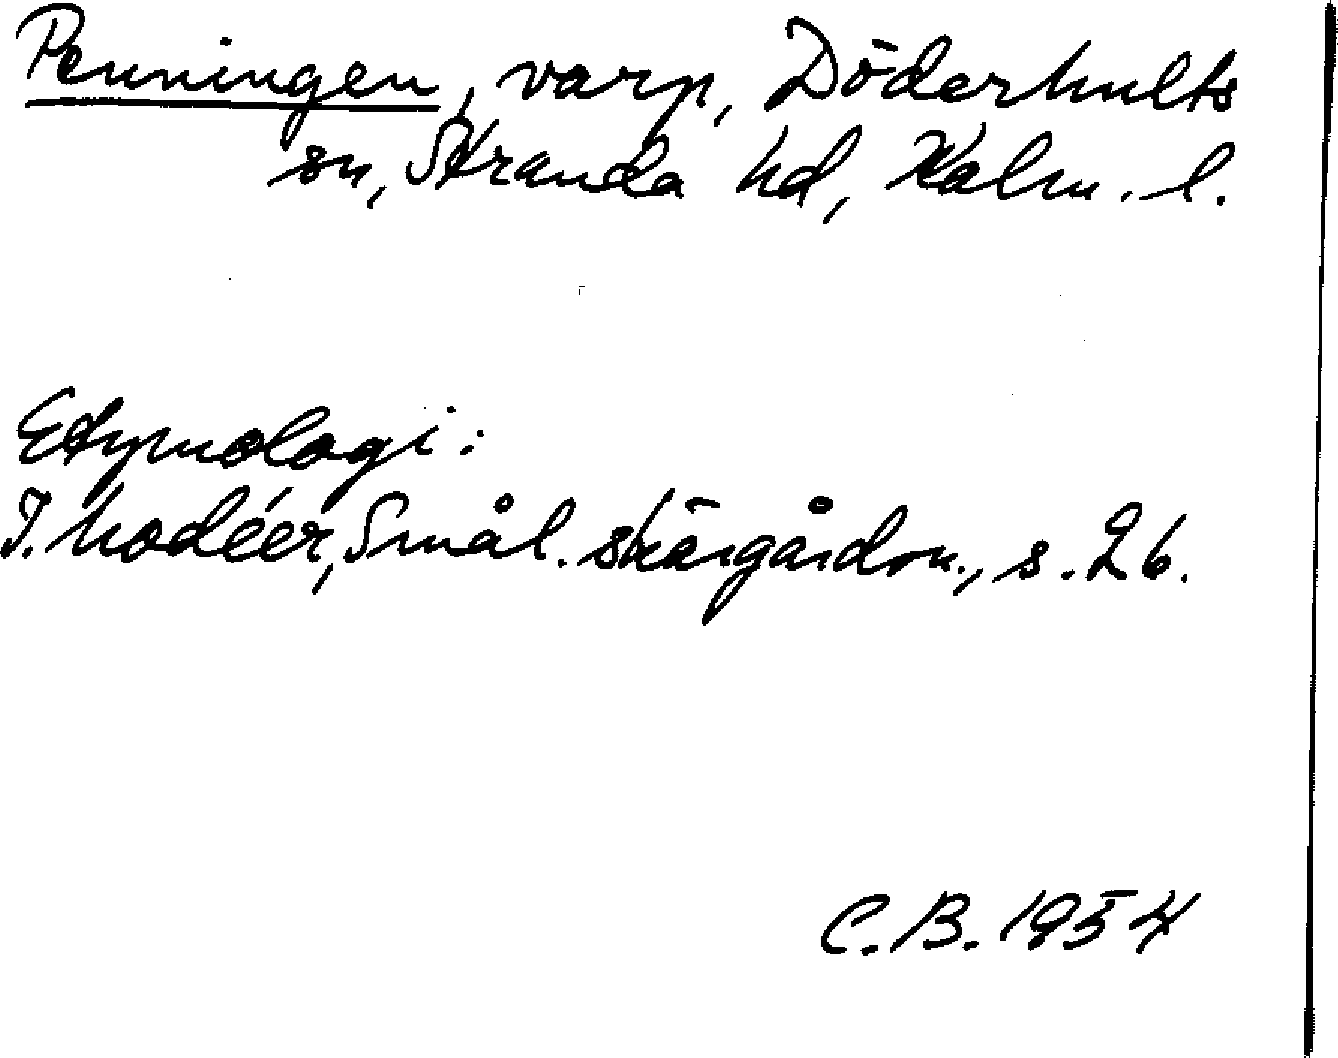 Penningen, varp, Döderhults
sn, Stranda hd, Kalm. l.
Etymologi:
I. Modéer, Smål. skärgårdsn., s. 26.
C. B. 1954